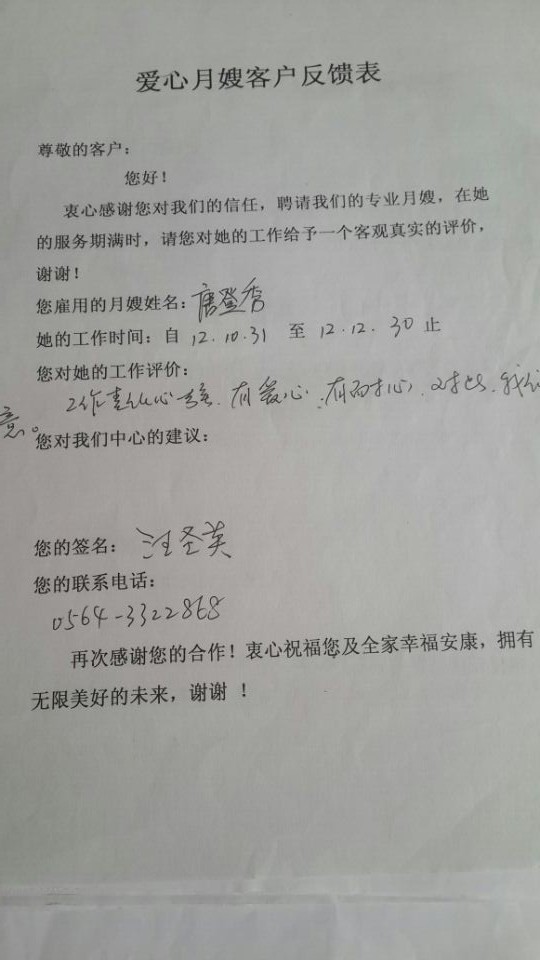 爱心月嫂客户反馈表
尊敬的客户：
您好！
衷心感谢您对我们的信任，聘请我们的专业月嫂，在她
的服务期满时，请您对她的工作给予一个客观真实的评价，
谢谢！
您雇用的月嫂姓名：唐登秀
她的工作时间：自 12.10.31 至 12.12.30 止
您对她的工作评价：
工作 有爱心、有耐心、对此、我们
意。
您对我们中心的建议：
您的签名：汪圣英
您的联系电话：
0564-3322868
再次感谢您的合作！衷心祝福您及全家幸福安康，拥有
无限美好的未来，谢谢！